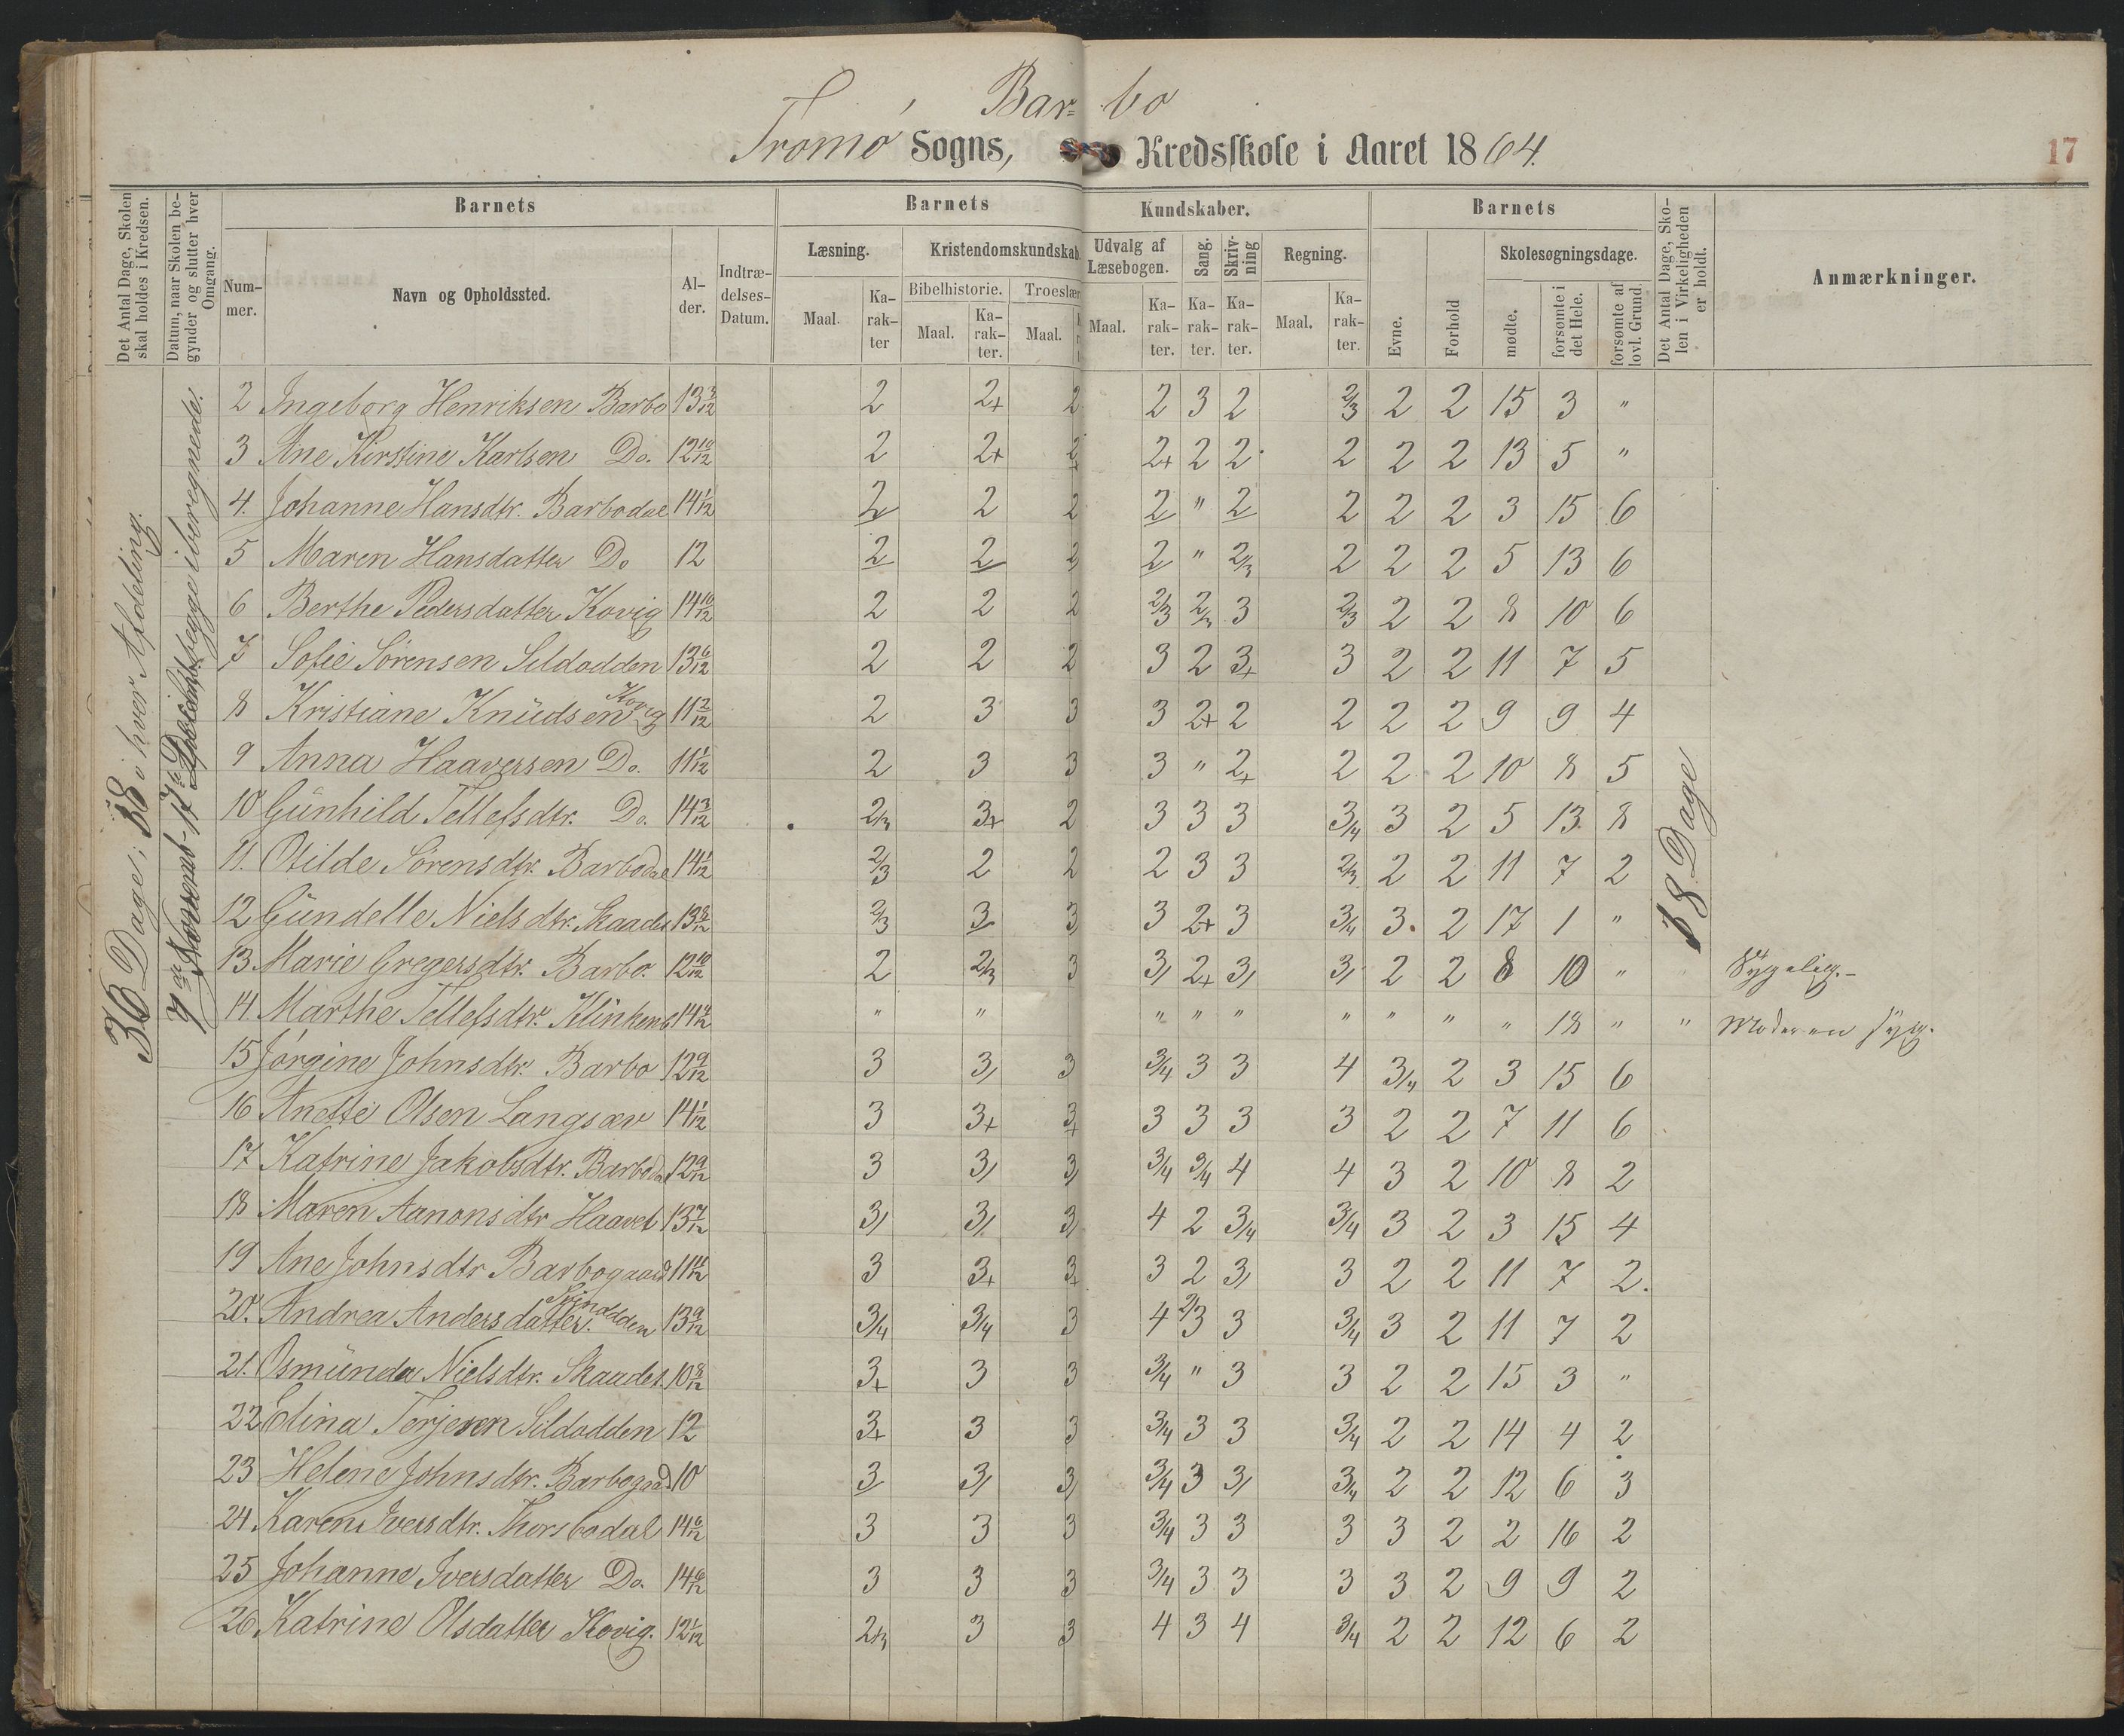 Bar- bo
Tromø Sogns, Kredsskole i Aaret 1864.
17
Det Antal Dage, Skolen skal holdes i Kredsen.
Datum, naar Skolen begynder og slutter hver Omgang.
Barnets
Barnets
Kundskaber.
Barnets
Det Antal Dage, Skolen i Virkeligheden er holdt.
Anmærkninger.
Nummer.
Navn og Opholdssted.
Alder.
Indtrædelses-Datum.
Læsning.
Kristendomskundskab
Udvalg af Læsebogen.
Sang.
Skrivning
Regning.
Evne.
Forhold
Skolesøgningsdage.
Bibelhistorie.
Troeslær
Maal.
Karakter
Maal.
Karakter.
Maal.
Maal.
Karakter.
Karakter.
Karakter.
Maal.
Karakter.
mødte.
forsømte i det Hele.
forsømte af lovl. Grund.
36 Dage; 18 i hver Afdeling.
begge iberegnede.
18 Dage
2 Ingeborg Henriksen Barbo 13 3/12 2 2+ 2 2 3 2 2/3 2 2 15 3 "
3 Ane Kirstine Karlsen Do. 12 10/12 2 2+ 2+ 2+ 2 2 2 2 2 13 5 "
4. Johanne Hansdtr. Barbodal 14 1/12 2 2 2 2 " 2 2 2 2 3 15 6
5 Maren Hansdatter Do 12 2 2 2 2 " 2/3 2 2 2 5 13 6
6 Berthe Pedersdatter Kovig 14 10/12 2 2 2 2/3 2/3 3 2/3 2 2 8 10 6
7 Sofie Sørensen Sildodden 13 6/12 2 2 2 3 2 3+ 3 2 2 11 7 5
8 Kristiane Knüdsen Kovig 11 2/12 2 3 3 3 2+ 2 2 2 2 9 9 4
9 Anna Haaversen Do. 11 1/12 2 3 3 3 " 2+ 2 2 2 10 8 5
10 Günhild Tellefsdtr. Do. 14 3/12 2/3 3+ 2 3 3 3 3/4 3 2 5 13 8
11. Otilde Sørensdtr. Barbodal 14 1/12 2/3 2 2 2 3 3 2/3 2 2 11 7 2
12 Gündelle Nielsdtr. Skaades 13 8/12 2/3 3 3 3 2+ 3 3/4 3. 2 17 1 "
13. Marie Gregersdtr. Barbo. 12 10/12 2 2/3 3 3/ 2+ 3/ 3/ 2 2 8 10 " Sygelig.-
14 Marthe Tellefsdtr. " " " " " " " " " 18 " " Moderen syg.
15 Jørgine Johnsdtr. Barbo 12 9/12 3 3/ 3 3/4 3 3 4 3/4 2 3 15 6
16 Anette Olsen Langsæv 14 1/12 3 3+ 3+ 3 3 3 3 2 2 7 11 6
17 Katrine Jakobsdtr. Barbodal 12 9/12 3 3/ 3/ 3/4 3/4 4 4 3 2 10 8 2
18 Maren Aanonsdtr Haavet 13 7/12 3/ 3/ 3/ 4 2 3/4 3/4 3 2 3 15 4
19 Ane Johnsdtr Barbogaard 11 11/12 3 3+ 3+ 3 2 3/ 3 2 2 11 7 2.
20. Andrea Andersdatter. Svinodden 13 9/12 3/4 3/4 3 4 2/3 3 3/4 3 2 11 7 2
21. Osmünda Nielsdtr. Skaades. 10 8/12 3+ 3 3 3/4 " 3 3 2 2 15 3 "
22 Elina Terjesen Sildodden 12 3+ 3 3 3/4 3 3 3/4 2 2 14 4 2
23 Helene Johnsdtr. Barbogaard 10 3 3/ 3/ 3/4 3 3/ 3/4 2 2 12 6 3
24 Karen Iversdtr. Thorsbodal 14 6/12 3 3 3 3/4 3 3 3 3 2 2 16 2
25 Johanne Iversdatter Do. 14 6/12 3 3 3 3/4 3 3 3 3 2 9 9 2
26 Katrine Olsdatter Kovig. 12 1/12 2/3 3 3 4 3 4 3/4 2 2 12 6 2